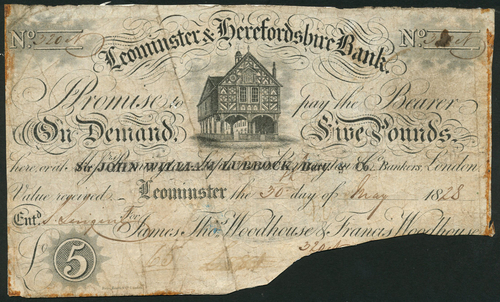 No No
Leominster & Herefordshire Bank.
Promise to pay the Bearer
On Demand, Five Pounds.
here, or at Sir JOHN WILLIAM LUBBOCK, Bart. & Co. Bankers, London
Value received. Leominster the 30 day of May 1828
Entd. For
James, Thos. Woodhouse & Francis Woodhouse
£ 5